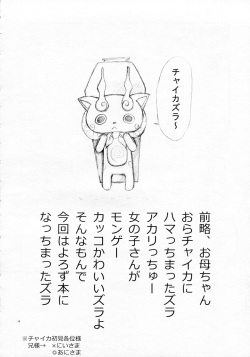 チャイカズラ～
前略、お母ちゃん
おらチャイカに
ハマっちまったズラ
アカリっちゅー
女の子さんが
モンゲー
カッコかわいいズラよ
そんなもんで
今回はよろず本に
なっちまったズラ
※チャイカ初見各位様
兄様→ ×にいさま
◎あにさま